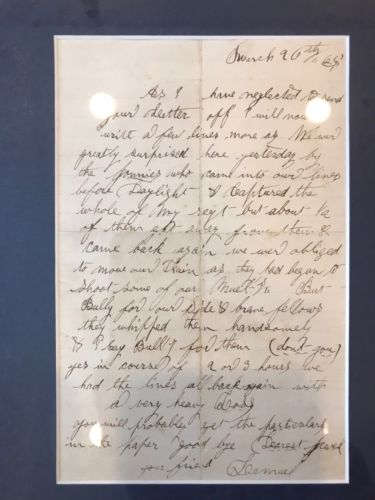 March 26th / 65
As I have neglected to send
your Letter off I will now
write a few lines more as We wer
greatly surprised here yesterday by
the Jonnies who came into our lines
before Daylight & Captured the
whole of my regt but about 1/2
of them got away from them &
came back again we wer obliged
to move our Train as they had began to
Shoot some of our But
Bully for our side & brave fellows
they whipped them handsomely
& I say Bully for them (dont you)
yes in course of 2 or 3 hours we
had the lines al back again with
a very heavy Loss
you will probable get the particulars
in the paper Good bye Dearest
your friend